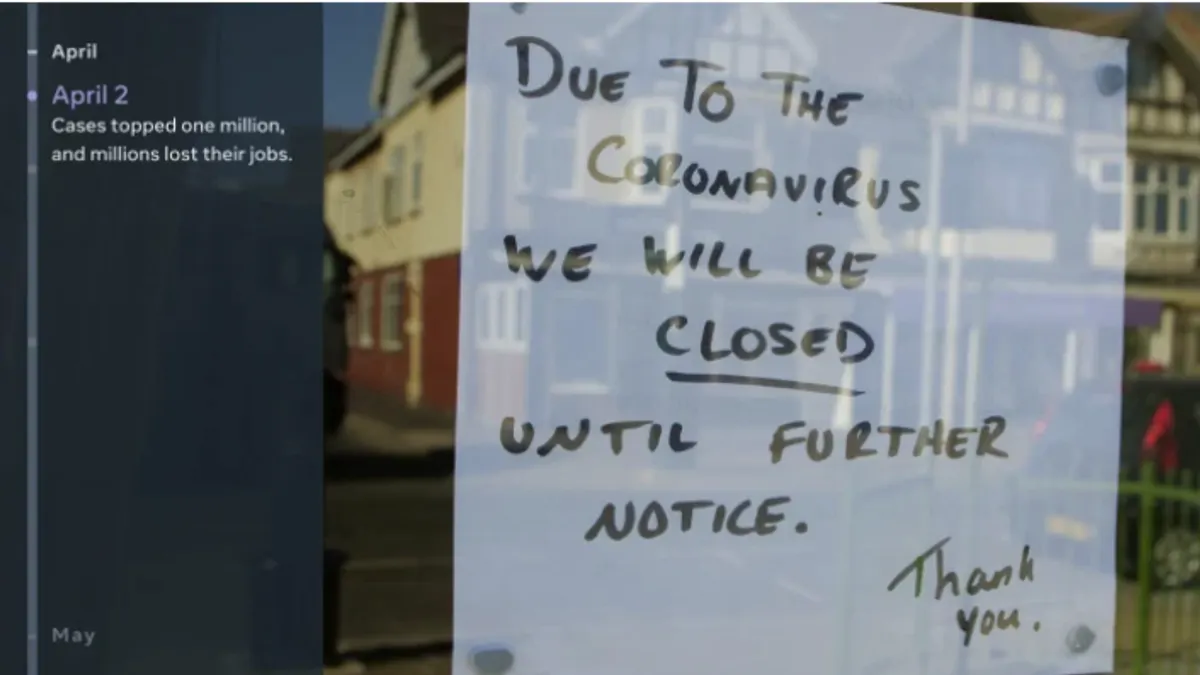 April
April 2
Cases topped one million,
and millions lost their jobs.
May
DUE TO THE
CORONAVIRUS
WE WILL BE
CLOSED
UNTIL FURTHER
NOTICE.
Thank
you.